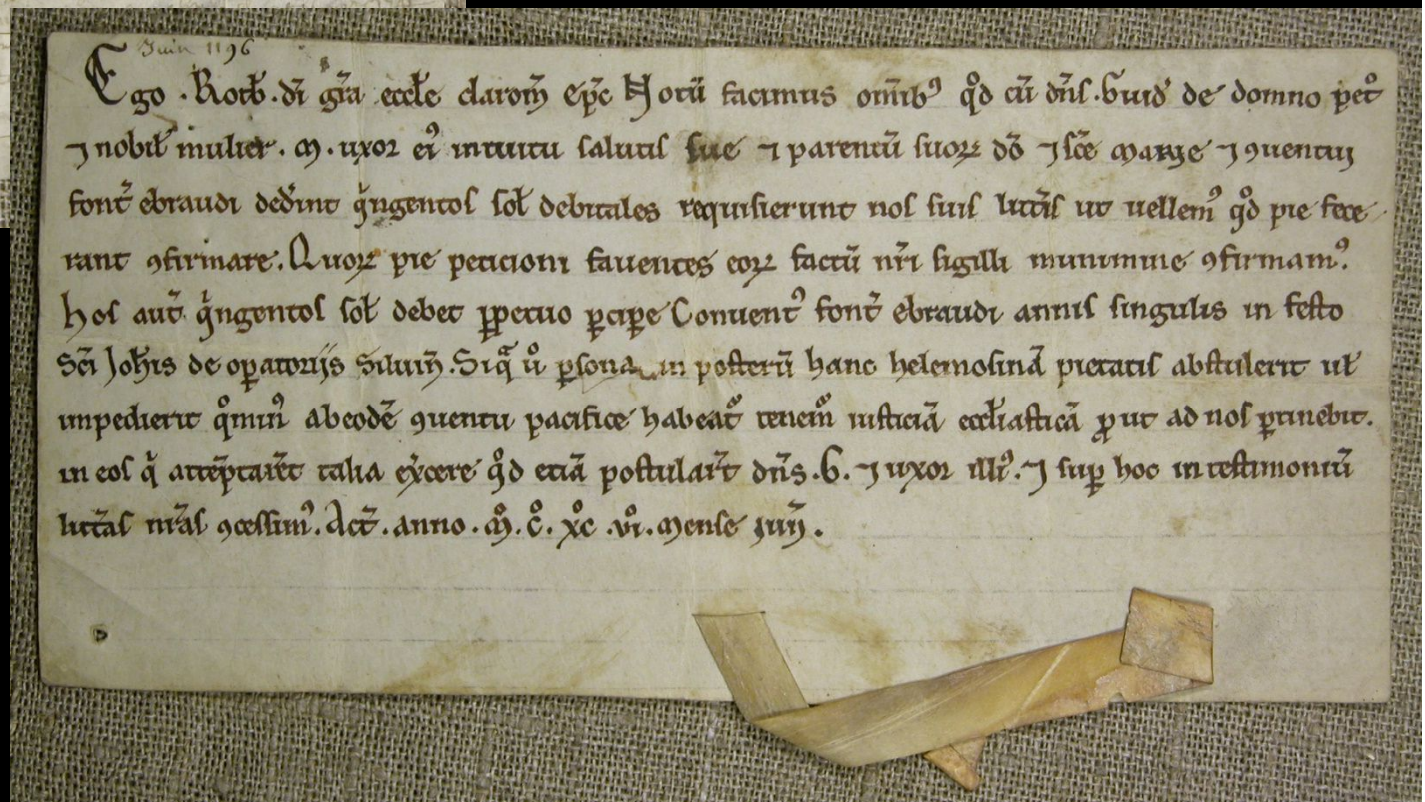 Juin 1196
Ego . Rotb̃ . dī gr̃a eccl̃e clarom̃ ep̃c Notū facimus om̃ib⁹ qͦd cū dñs . Guid̃ de domno pet̊
⁊ nobil̃ mulier . M . uxor ei⁹ intuitu salutis sue ⁊ parentū suoꝝ dō ⁊ sc̃e marie ⁊ ꝯuentui
font̃ ebraudi ded̃int qͥngentos sol̃ debitales requisierunt nos suis litt̃is ut vellem⁹ qͦd pie fece
rant ꝯfirmare . Quoꝝ pie peticioni faventes eoꝝ factū nr̃i sigilli munimine ꝯfirmam⁹.
Hos aut̃ qͥngentos sol̃ debet ꝑpetuo ꝑcipe Convent⁹ font̃ ebraudi annis singulis in festo
Sc̃i Joh̃is de oꝑatorijs Siluiñ . Siqͣ ů ꝑsona in posterū hanc helemosinā pietatis abstulerit ul̃
impedierit qͦmin⁹ abeodē ꝯuentu pacifice habeat᷑ tenem᷑ iusticiā eccl̃iasticā ꝓut ad nos ꝑtinebit .
in eos qͥ attēptar̃et talia ex̃cere qͦd etiā postular̃t dñs . G . ⁊ uxor illi⁹ . ⁊ suꝑ hoc in testimoniū
litt̃as nr̃as ꝯcessim⁹ . Act̃ . anno . Mͦ . Cͦ . XͦC . vͦi . mense Junij .